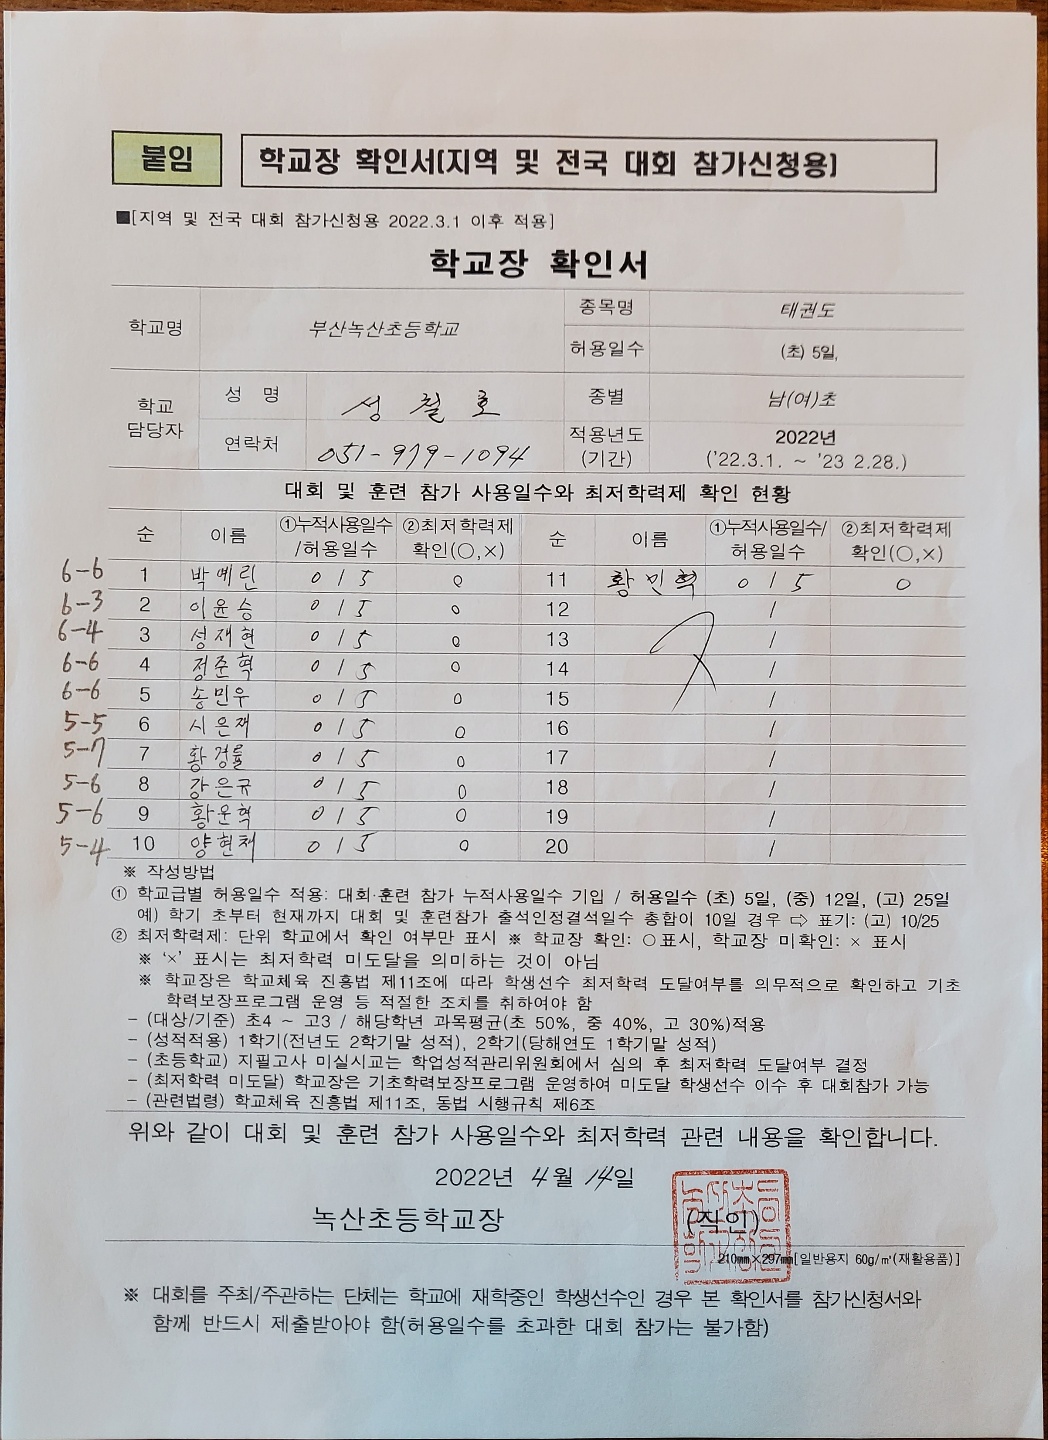 붙임
학교장 확인서(지역 및 전국 대회 참가신청용)
■[지역 및 전국 대회 참가신청용 2022.3.1 이후 적용]
학교장 확인서
학교명 부산녹산초등학교 종목명 태권도
허용일수 (초) 5일,
학교 담당자 성 명 성 철 호 종별 남(여)초
연락처 051-979-1094 적용년도 (기간) 2022년 ('22.3.1. ~ '23 2.28.)
대회 및 훈련 참가 사용일수와 최저학력제 확인 현황
순 이름 ①누적사용일수/허용일수 ②최저학력제 확인(○,×) 순 이름 ①누적사용일수/허용일수 ②최저학력제 확인(○,×)
6-6 1 박예린 0 / 5 0 11 황민혁 0 / 5 0
6-3 2 이윤승 0 / 5 0 12 /
6-4 3 성재현 0 / 5 0 13 /
6-6 4 정준혁 0 / 5 0 14 /
6-6 5 송민우 0 / 5 0 15 /
5-5 6 시은재 0 / 5 0 16 /
5-7 7 황경률 0 / 5 0 17 /
5-6 8 강은규 0 / 5 0 18 /
5-6 9 황운혁 0 / 5 0 19 /
5-4 10 양현채 0 / 5 0 20 /
※ 작성방법
① 학교급별 허용일수 적용: 대회·훈련 참가 누적사용일수 기입 / 허용일수 (초) 5일, (중) 12일, (고) 25일
예) 학기 초부터 현재까지 대회 및 훈련참가 출석인정결석일수 총합이 10일 경우 ⇨ 표기: (고) 10/25
② 최저학력제: 단위 학교에서 확인 여부만 표시 ※ 학교장 확인: ○표시, 학교장 미확인: × 표시
※ '×' 표시는 최저학력 미도달을 의미하는 것이 아님
※ 학교장은 학교체육 진흥법 제11조에 따라 학생선수 최저학력 도달여부를 의무적으로 확인하고 기초
학력보장프로그램 운영 등 적절한 조치를 취하여야 함
- (대상/기준) 초4 ~ 고3 / 해당학년 과목평균(초 50%, 중 40%, 고 30%)적용
- (성적적용) 1학기(전년도 2학기말 성적), 2학기(당해연도 1학기말 성적)
- (초등학교) 지필고사 미실시교는 학업성적관리위원회에서 심의 후 최저학력 도달여부 결정
- (최저학력 미도달) 학교장은 기초학력보장프로그램 운영하여 미도달 학생선수 이수 후 대회참가 가능
- (관련법령) 학교체육 진흥법 제11조, 동법 시행규칙 제6조
위와 같이 대회 및 훈련 참가 사용일수와 최저학력 관련 내용을 확인합니다.
2022년 4월 14일
녹산초등학교장 (직인)
210㎜×297㎜[일반용지 60g/㎡(재활용품)]
※ 대회를 주최/주관하는 단체는 학교에 재학중인 학생선수인 경우 본 확인서를 참가신청서와
함께 반드시 제출받아야 함(허용일수를 초과한 대회 참가는 불가함)